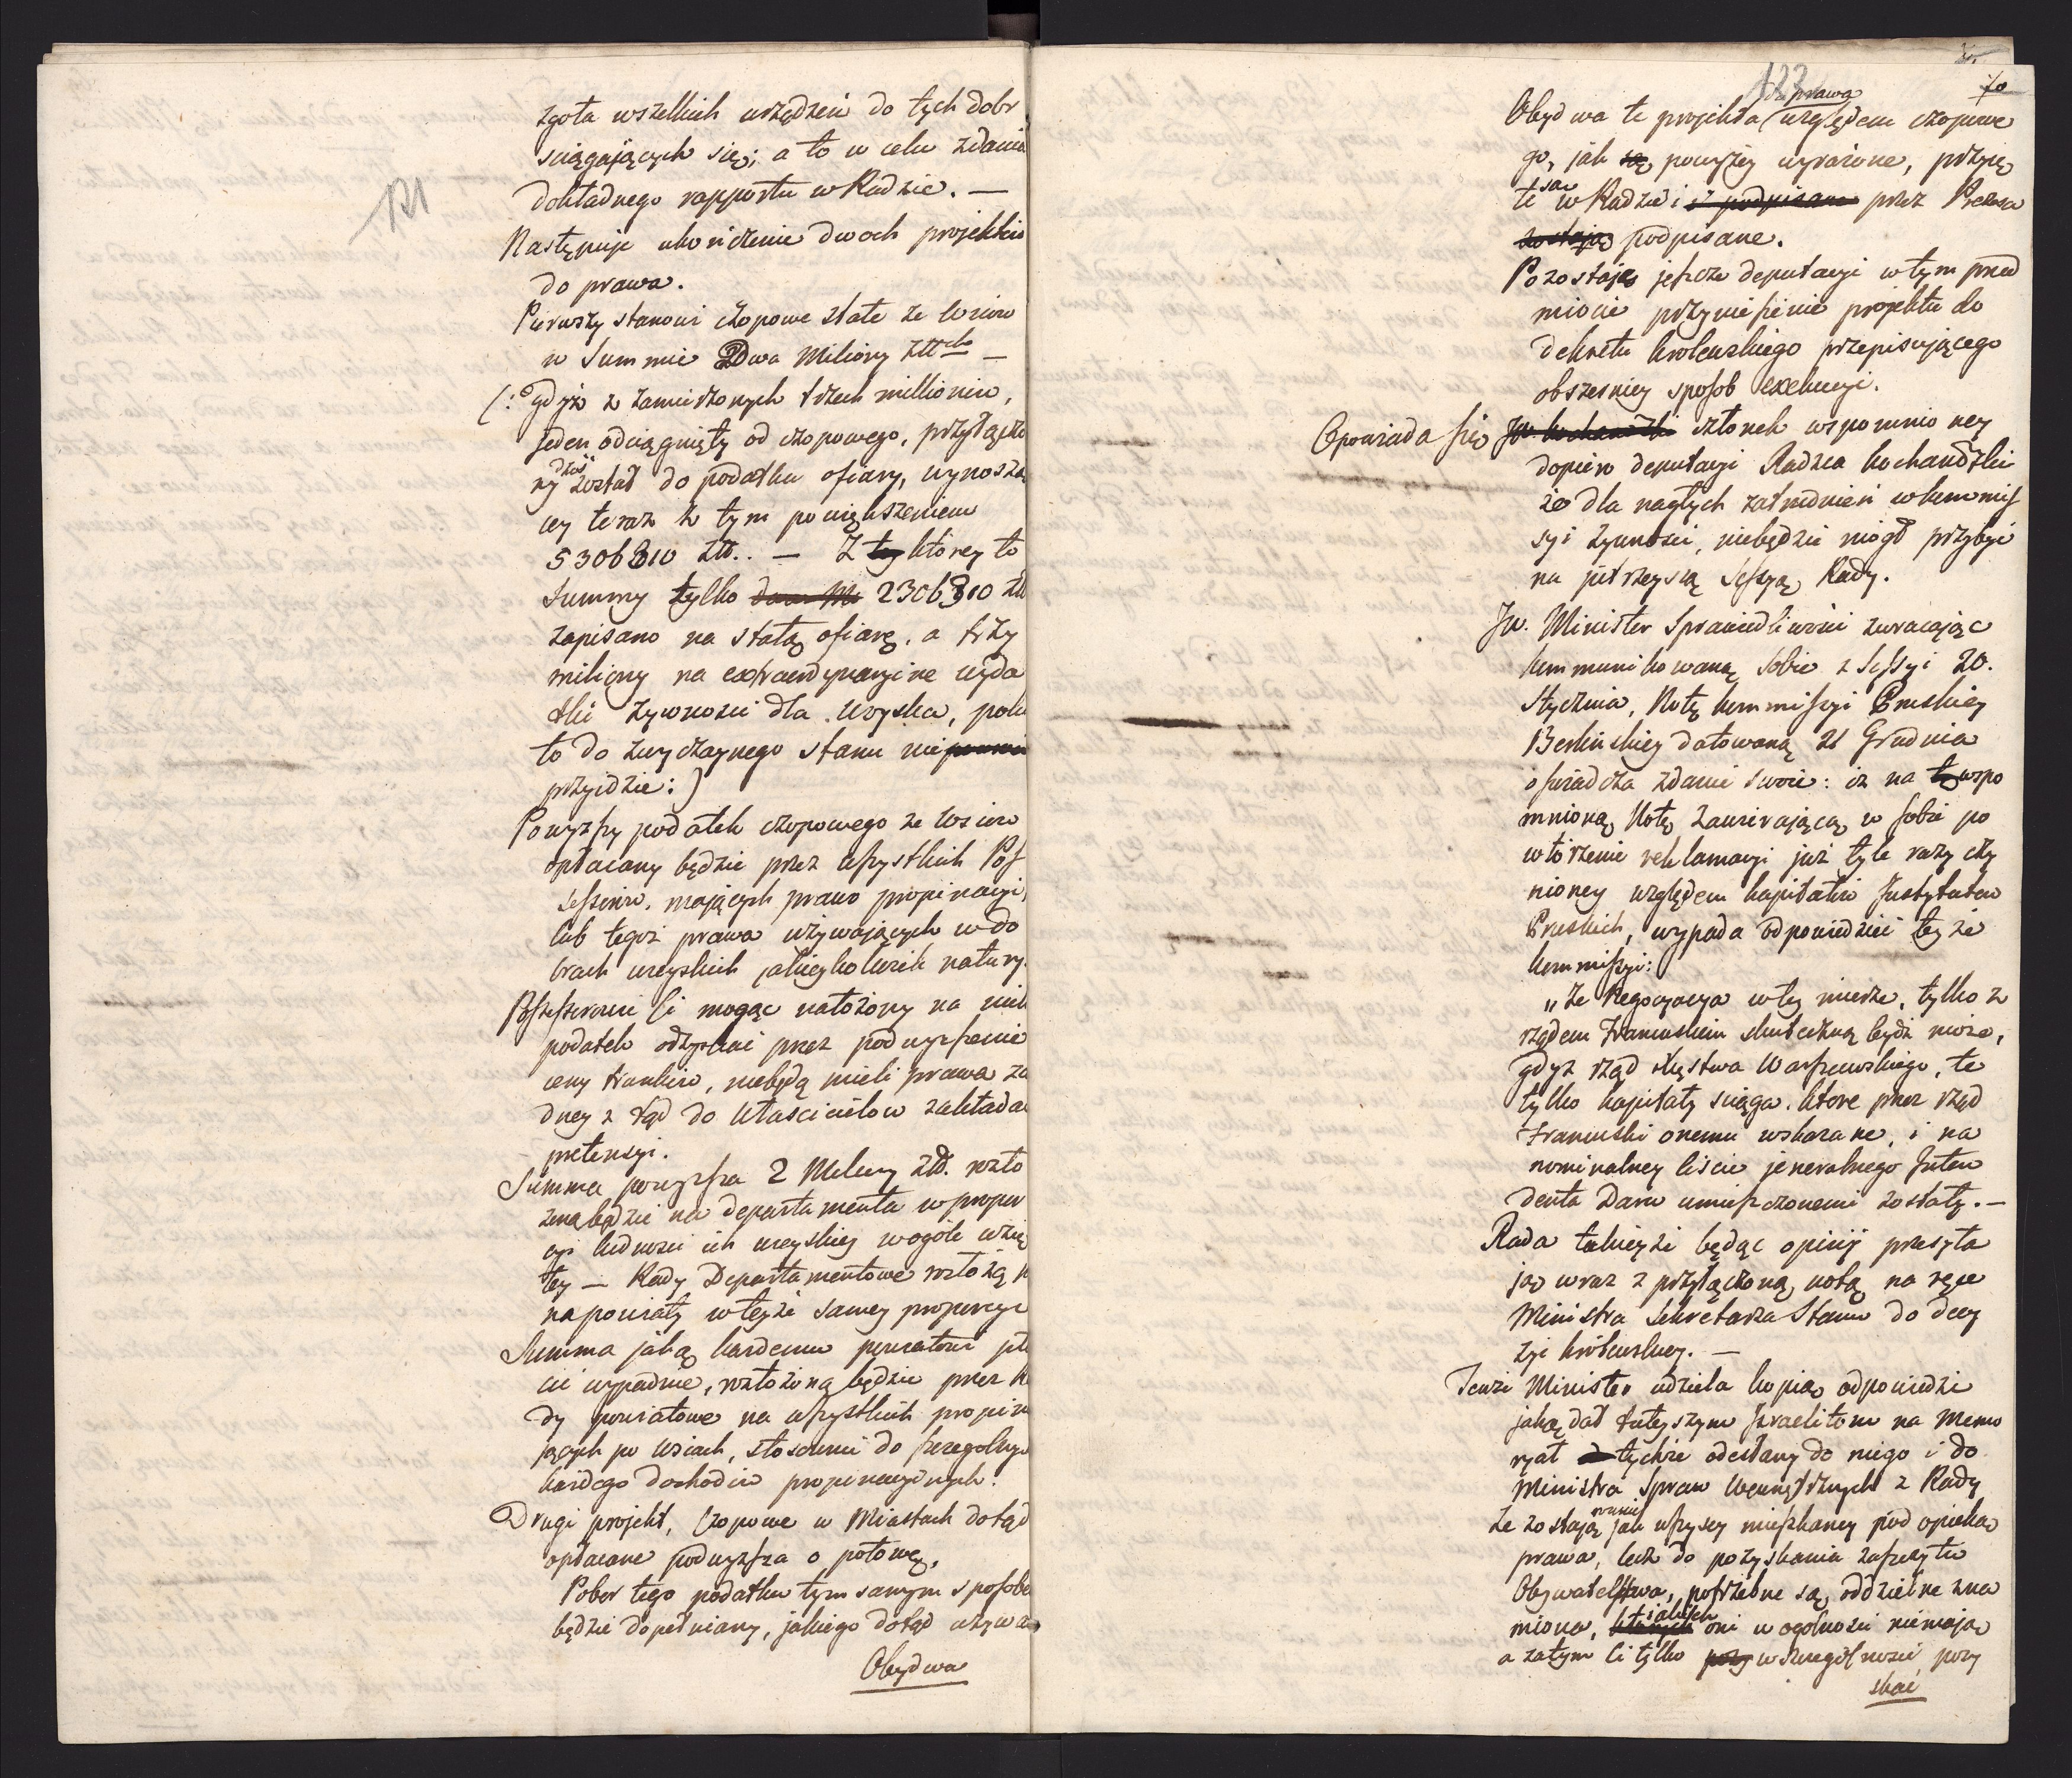 121
zgoła wszelkich urządzeń do tych dobr
sciągających się; a to w celu zdania
dokładnego rapportu w Radzie. —
Następuje ukończenie dwoch projektów
do prawa.
Pierwszy stanowi czopowe stałe ze wsiów
w Summie Dwa Miliony Złt —
(: Gdyż z zamierzonych trzech millionów,
jeden odciągnięty od czopowego, przyłączo
ny został do podatku ofiary, wynoszą
cey teraz z tym powiększeniem
5306810 Złt.. — Z tey ktorey to
Summy tylko dwa Mi 2306310 Złt
zapisano na stałą ofiarę, a trzy
miliony na extraordynaryine wyda
tki żywności dla Woyska, poki
to do zwyczaynego stanu nie
przyidzie :)
Powyższy podatek czopowego ze wsiów
opłacany będzie przez wszystkich Pos
sessorów, mających prawo propinacyi,
lub tegoż prawa używających w do
brach wieyskich jakieykolwiek natury.
Possessorowie ci mogąc nałożony na nich
podatek odzyskać przez podwyższenie
ceny trunków, niebędą mieli prawa ża
dney z tąd do Właścicielow zakładać
pretensyi.
Summa powyższa 2 Miliony Złt. rozło
żoną będzie na departamenta w propor
cyi ludności ich wieyskiey wogóle wzię
tey — Rady Departamentowe rozłożą
na powiaty w teyże samey proporcyi
Summa jaką każdemu powiatowi pła
cić wypadnie, rozłożoną będzie przez Ra
dy powiatowe na wszystkich propinu
jących po wsiach, stosownie do szczegolnych
każdego dochodów propinacyinych.
Drugi projekt, czopowe w Miastach dotąd
opłacane podwyższa o połowę.
Pobor tego podatku tym samym sposobem
będzie dopełniany, jakiego dotąd używa
Obydwa
122
do prawa
Obydwa te projekta względem czopowe
go, jak są powyżey wyrażone, przyię
te są w Radzie i podpisane przez Prezesa
zostają podpisane.
Pozostaje jeszcze deputacyi w tym przed
miocie przyniesienie projektu do
dekretu krolewskiego przepisującego
obszerniey sposob exekucyi.
Opowiada się JW. Kochanowski członek wspomnioney
dopiero deputacyi Radzca Kochanowski
że dla nagłych zatrudnień w kommis
syi żywności, niebędzie mógł przybyć
na jutrzeyszą Sessyą Rady.
JW. Minister Sprawiedliwości zwracając
kommunikowaną sobie z Sessyi 20.
Stycznia, Notę kommissyi Pruskiey
Berlińskiey datowaną 21 Grudnia
oświadcza zdanie swoie: iż na tę wspo
mnioną Notę zawierającą w sobie po
wtórzenie reklamacyi już tyle razy czy
nioney względem kapitałów Instytutow
Pruskich, wypada odpowiedzieć teyże
kommissyi:
„Że Negocyacya w tey mierze, tylko z
rządem Francuskim skuteczną bydź może,
gdyż rząd Xięstwa Warszawskiego, te
tylko kapitały sciąga, ktore przez rząd
Francuski onemu wskazane, i na
nominalney liscie jeneralnego Inten
denta Daru umieszczonemi zostały. —
Rada takieyże będąc opinij przesyła
ją wraz z przyłączoną notą na ręce
Ministra Sekretarza Stanu do decy
zyi królewskiey. —
Tenże Minister udziela kopią odpowiedzi
jaką dał tuteyszym Izraelitom na Memo
ryał tychże odesłany do niego i do
Ministra Spraw Wewnętrznych z Rady
że zostają jak wszyscy mieszkańcy pod opieką
prawa, lecz do pozyskania zaszczytu
Obywatelstwa, potrzebne są oddzielne zna
miona, których jakich oni w ogolności niemają
a zatym li tylko w szczegolności pozy
skać